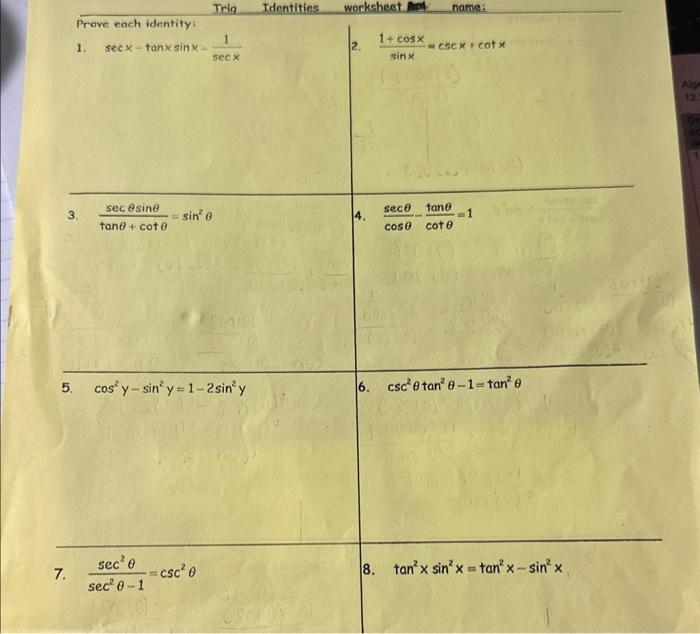 Trig Identities worksheet name:
Prove each identity:
1. sec x - tan x sin x = 1/sec x
2. (1 + cos x)/sin x = csc x + cot x
3. (sec θ sin θ)/(tan θ + cot θ) = sin² θ
4. sec θ/cos θ - tan θ/cot θ = 1
5. cos² y - sin² y = 1 - 2 sin² y
6. csc² θ tan² θ - 1 = tan² θ
7. sec² θ/(sec² θ - 1) = csc² θ
8. tan² x sin² x = tan² x - sin² x